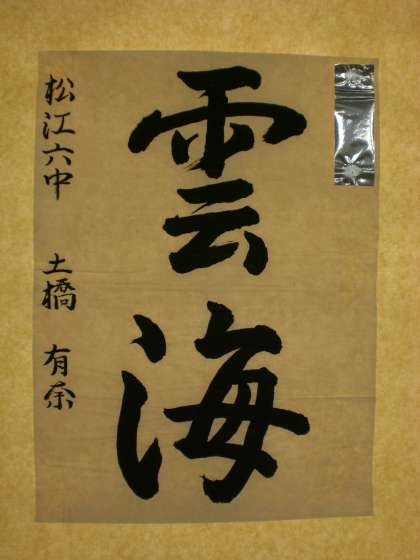 雲海
松江六中 土橋 有奈